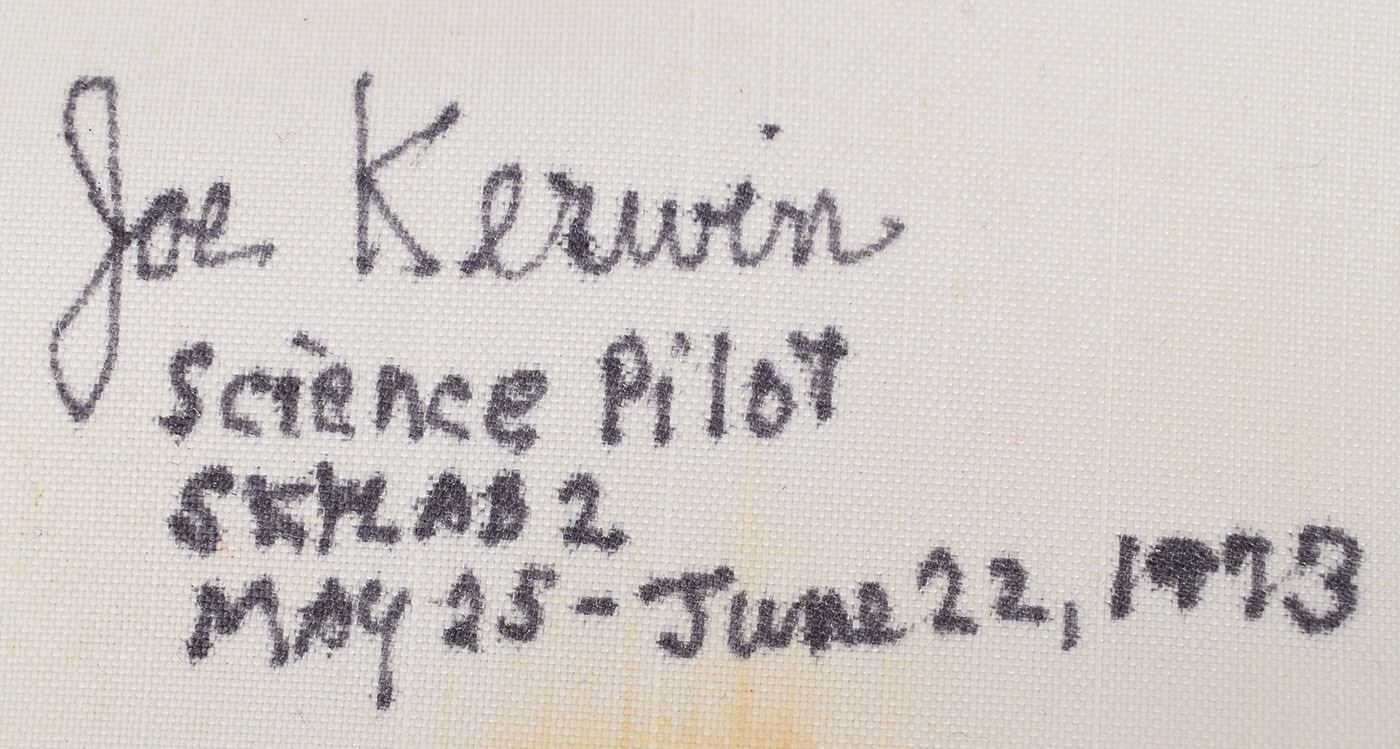 Joe Kerwin
Science Pilot
SKYLAB 2
MAY 25 - June 22, 1973